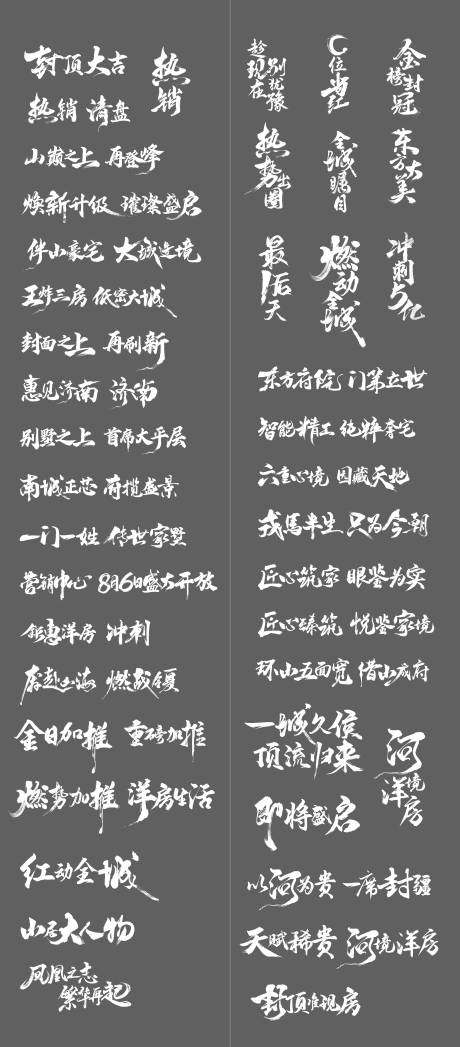 封顶大吉
热销
热销 清盘
山巅之上 再登峰
焕新升级 璀璨盛启
伴山豪宅 大城造境
王炸三房 低密大城
封面之上 再刷新
惠见济南 济南
别墅之上 首席大平层
南城正芯 府揽盛景
一门一姓 传世家墅
营销中心 8月6日盛大开放
钜惠洋房 冲刺
奔赴山海 燃战今夏
全日加推 重磅加推
燃势加推 洋房生活
红动全城
山居大人物
凤凰之志
繁华再起
趁现在
别犹豫
C位当红
金榜封冠
热势出圈
全城瞩目
东方大美
最后一天
燃动全城
冲刺5亿
东方府院 门第立世
智能精工 纯粹奢宅
六重心境 因藏天地
戎馬半生 只为今朝
匠心筑家 眼鉴为实
匠心臻筑 悦鉴家境
环山五面宽 借山成府
一城久候
顶流归来
河境洋房
即将盛启
以河为贵 一席封疆
天赋稀贵 河境洋房
封顶准现房